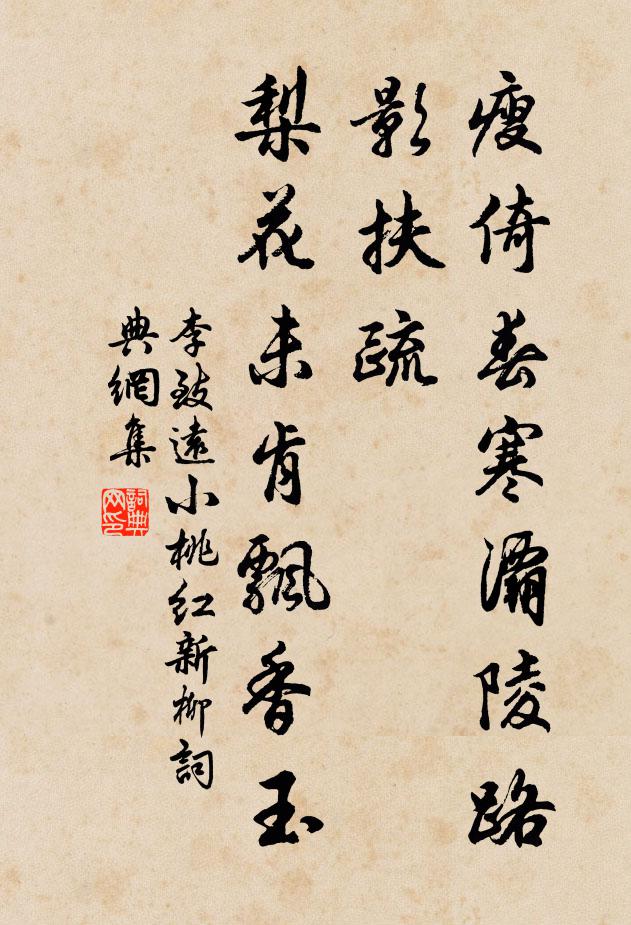 瘦倚春寒灞陵路
影扶疏
梨花未肯飄香玉
李致遠小桃紅新柳詞
典網集
詞典網印